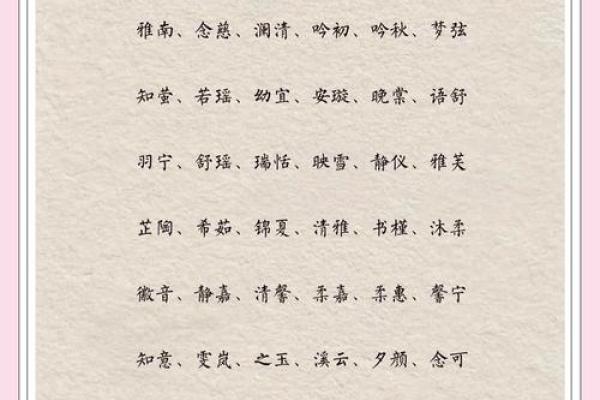 雅南、念慈、澜清、吟初、吟秋、梦弦
知萤、若瑶、幼宜、安璇、晚棠、语舒
羽宁、舒瑶、瑞恬、映雪、静仪、雅芙
芷陶、希茹、锦夏、清雅、书槿、沐柔
徽音、静嘉、清馨、柔嘉、柔惠、馨宁
知意、雯岚、之玉、溪云、夕颜、念可